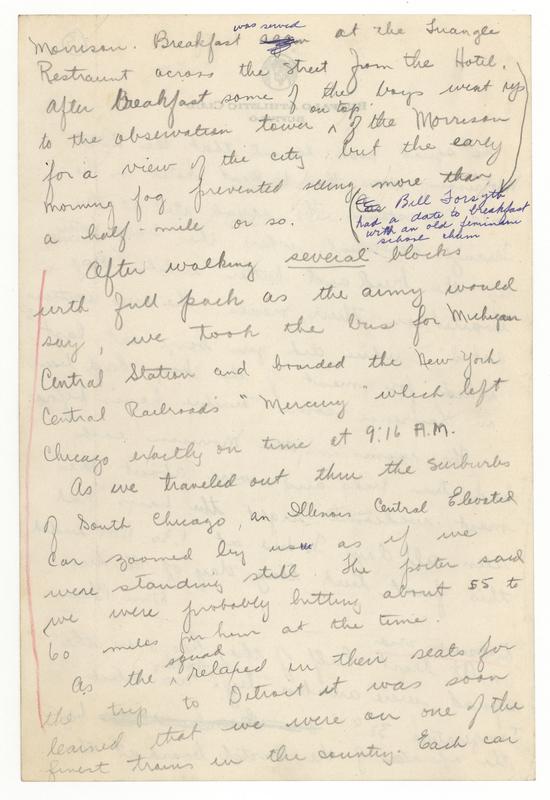 was served
Morrison. Breakfast at the Triangle
Restraunt across the street from the Hotel.
After Breakfast some of the boys went up
on top
to the observation tower ^ of the Morrison
for a view of the city but the early
morning fog prevented seeing more than
a half-mile or so.
( Bill Forsyth
had a date to breakfast
with an old feminine
school chum
After walking several blocks
with full pack as the army would
say, we took the bus for Michigan
Central Station and boarded the New York
Central Railroad's "Mercury" which left
Chicago exactly on time at 9:16 A.M.
As we traveled out thru the Surburbs
of South Chicago, an Illinois Central Elevated
Car zoomed by us as if we
were standing still. The porter said
we were probably hitting about 55 to
60 miles per hour at the time.
squad
As the ^ relaxed in their seats for
the trip to Detroit it was soon
learned that we were on one of the
finest trains in the country. Each car